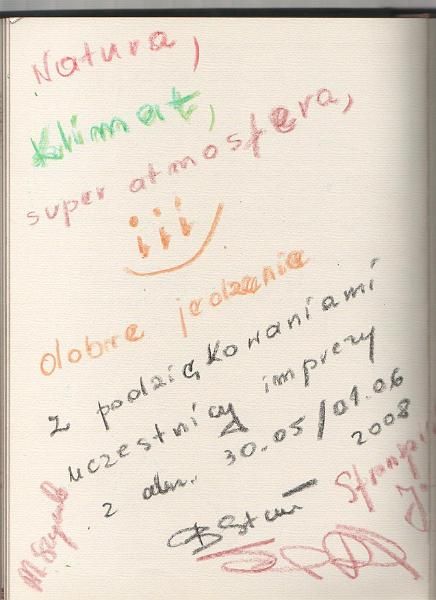 Natura,
Klimat,
super atmosfera,
iii
dobre jedzenie
z podziękowaniami
uczestnicy imprezy
z dn. 30.05/01.06
2008